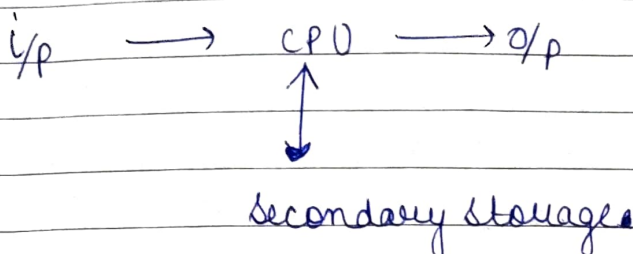 i/p → CPU → O/p
secondary storage